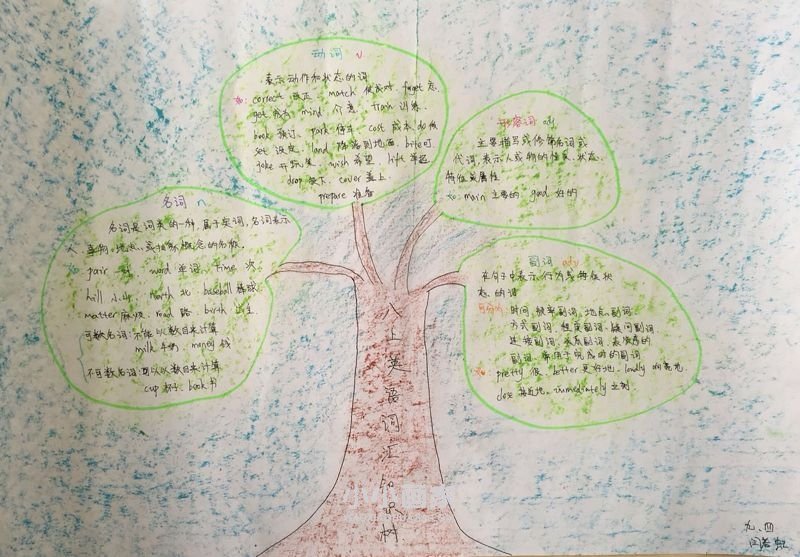 动词 v
表示动作和状态的词
如: correct 改正、match 使成对、forget 忘
get 成为、mind 介意、train 训练
book 预订、park 停车、cost 成本
set 设定、land 降落到地面、bite 叮
joke 开玩笑、wish 希望、lift 举起
drop 放下、cover 盖上
prepare 准备
形容词 adj
主要描写或修饰名词或
代词,表示人或物的性质、状态、
特征或属性
如: main 主要的、good 好的
名词 n
名词是词类的一种,属于实词,名词表示
人、事物、地点、或抽象概念的名称
如: pair 一对、word 单词、time 次
hill 小山、north 北、baseball 棒球
matter 麻烦、road 路、birth 出生
可数名词:不能以数目来计算
milk 牛奶、money 钱
不可数名词:可以以数目来计算
cup 杯子、book 书
副词 adv
在句子中表示行为或特征状
态的词
可分为: 时间、频率副词、地点副词
方式副词、程度副词、疑问副词
连接副词、关系副词、表顺序的
副词、常用于完成时的副词
如: pretty 很、better 更好地、loudly 响亮地
close 接近地、immediately 立刻
八上英语词汇知识树
九.四